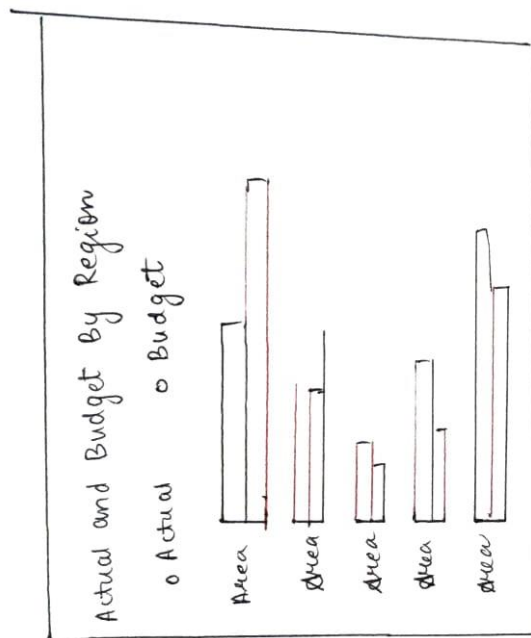 Actual and Budget By Region
o Actual o Budget
Area
Area
Area
Area
Area